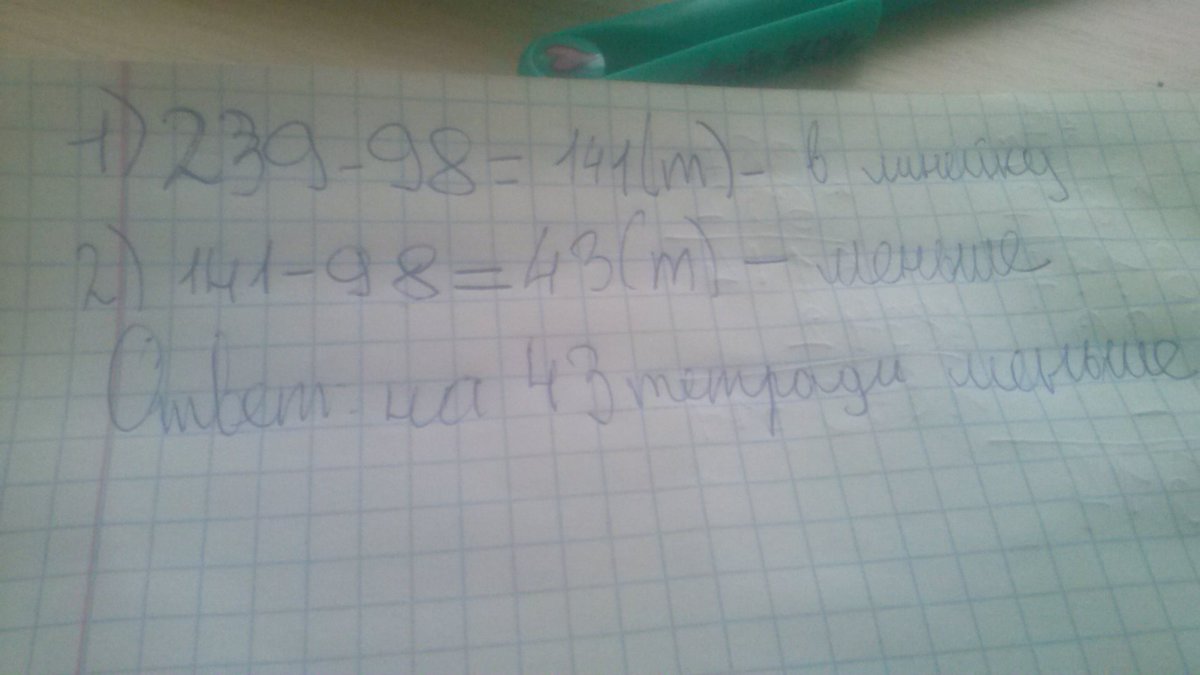 1) 239-98= 141(т)- в линейку
2) 141-98=43(т) - меньше
Ответ: на 43 тетради меньше